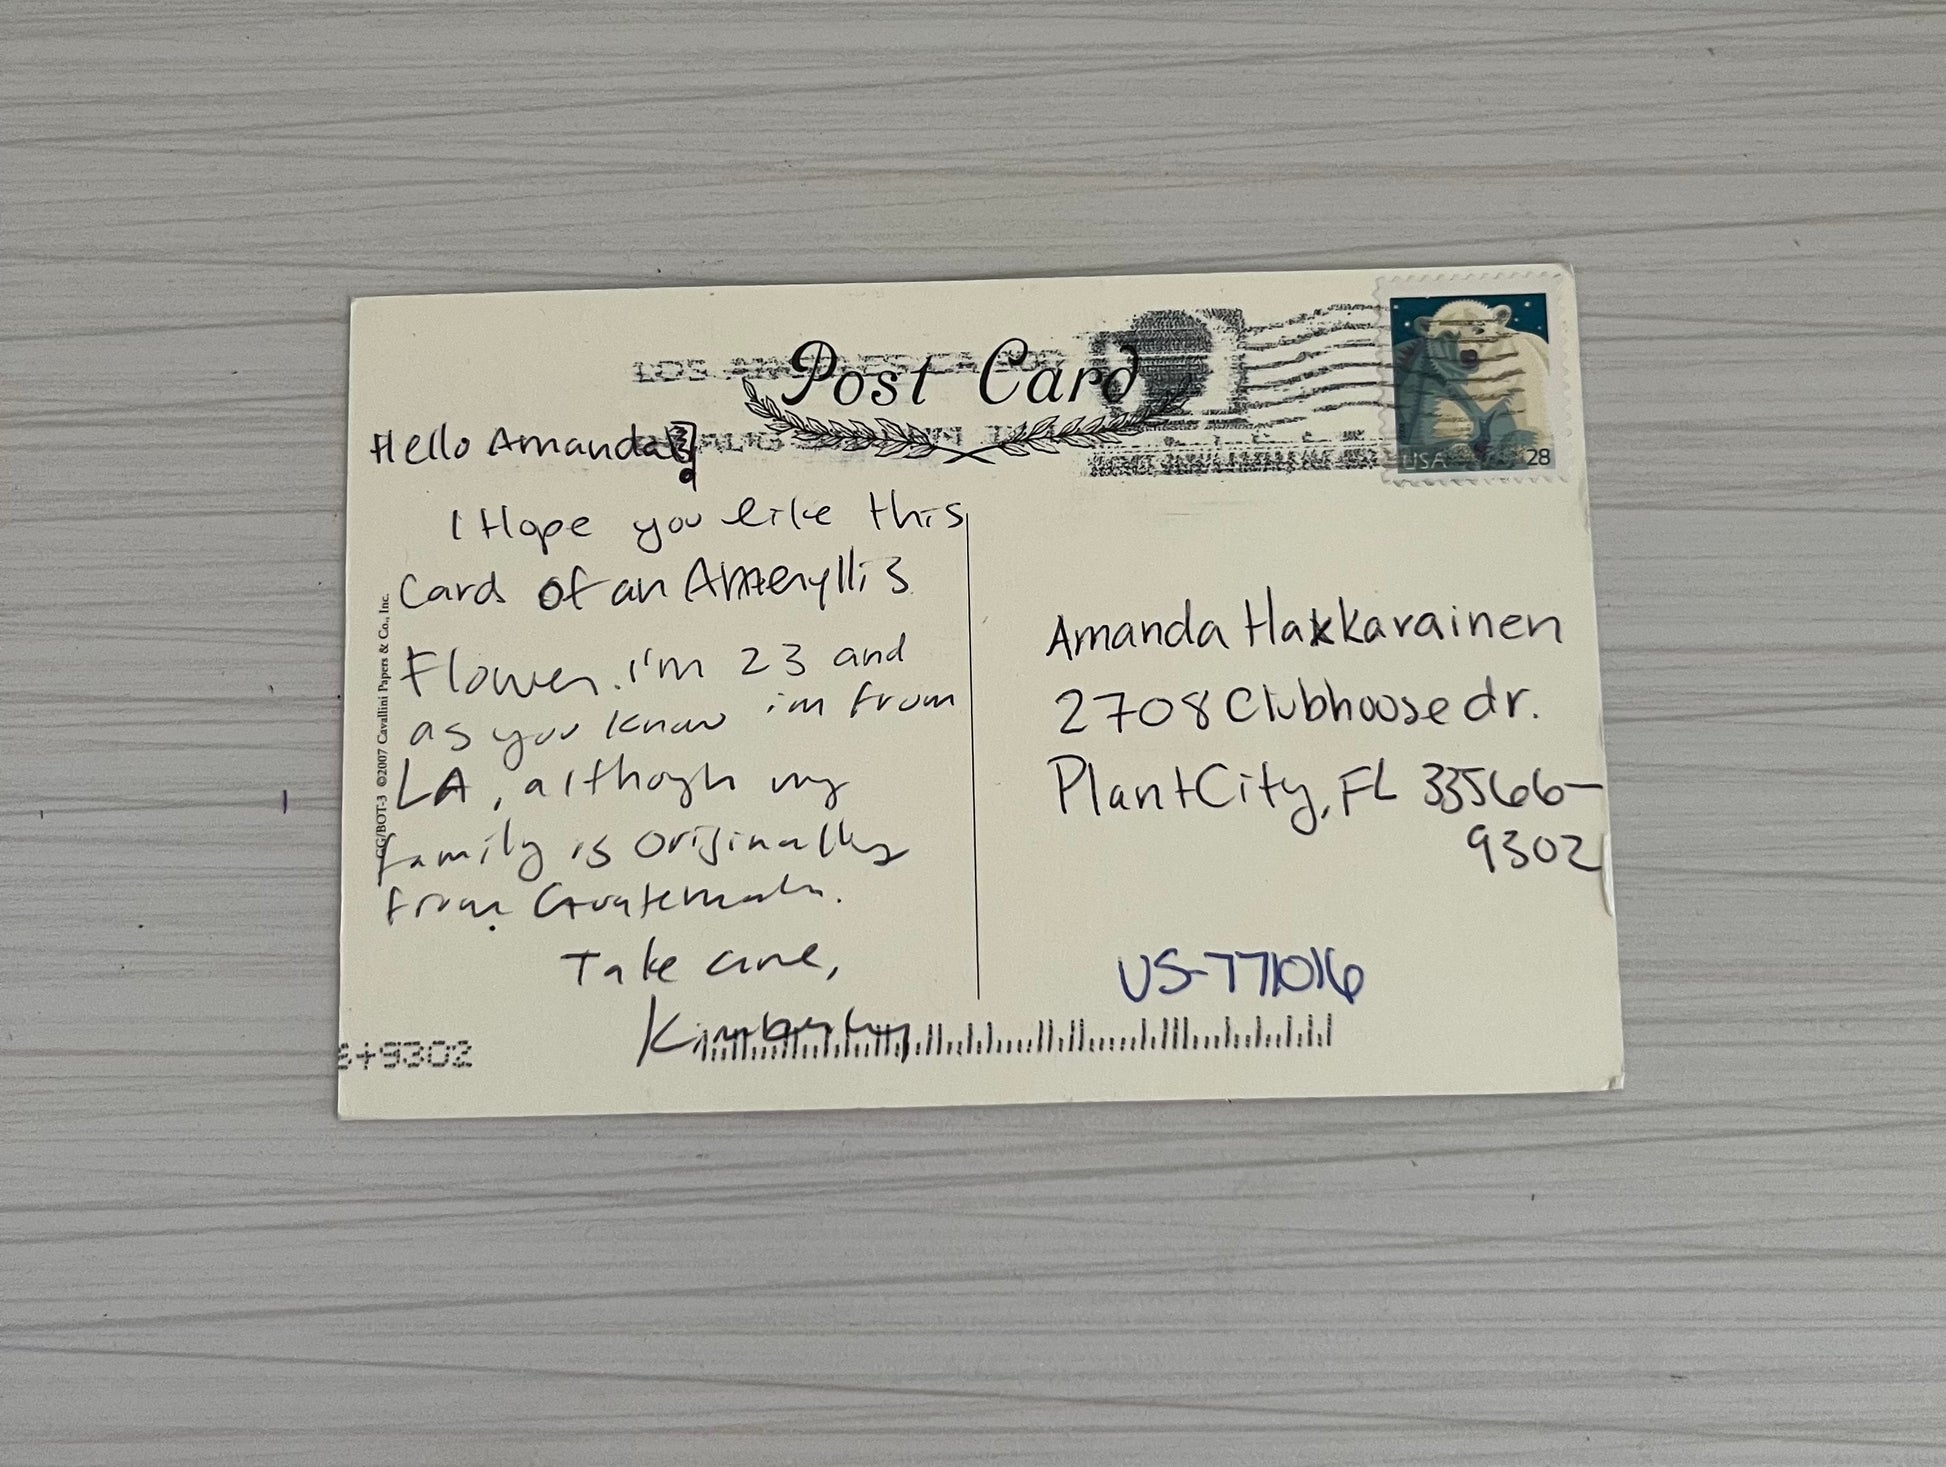 LOS ANGELES CA
Post Card
AUG
USA 28
Hello Amanda!
I Hope you like this
Card of an Ameryllis
Flower. i'm 23 and
as you know i'm from
LA, although my
family is originally
from Guatemala.
Take care,
Kimberly
GG/BOT-3 ©2007 Cavallini Papers & Co., Inc.
Amanda Hakkarainen
2708 Clubhouse dr.
Plant City, FL 33566-
9302
US-771016
6+9302